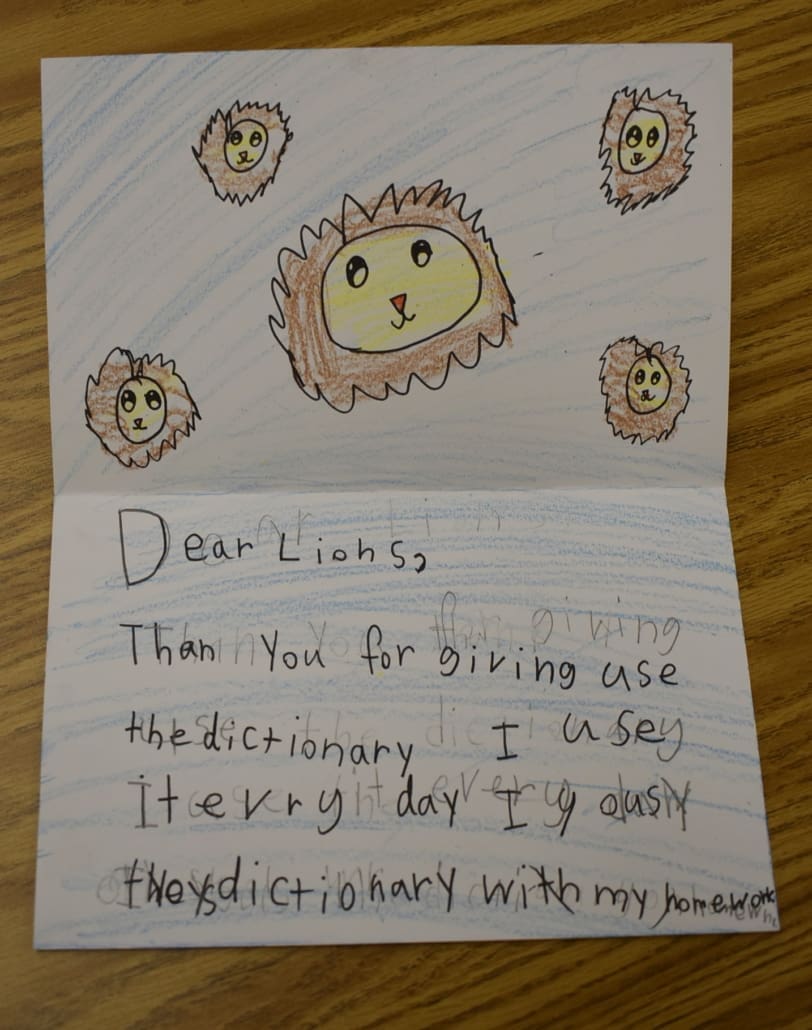 Dear Lions,
Than You for giving use
the dictionary I usey
it evry day I y ously
theys dictionary with my homework